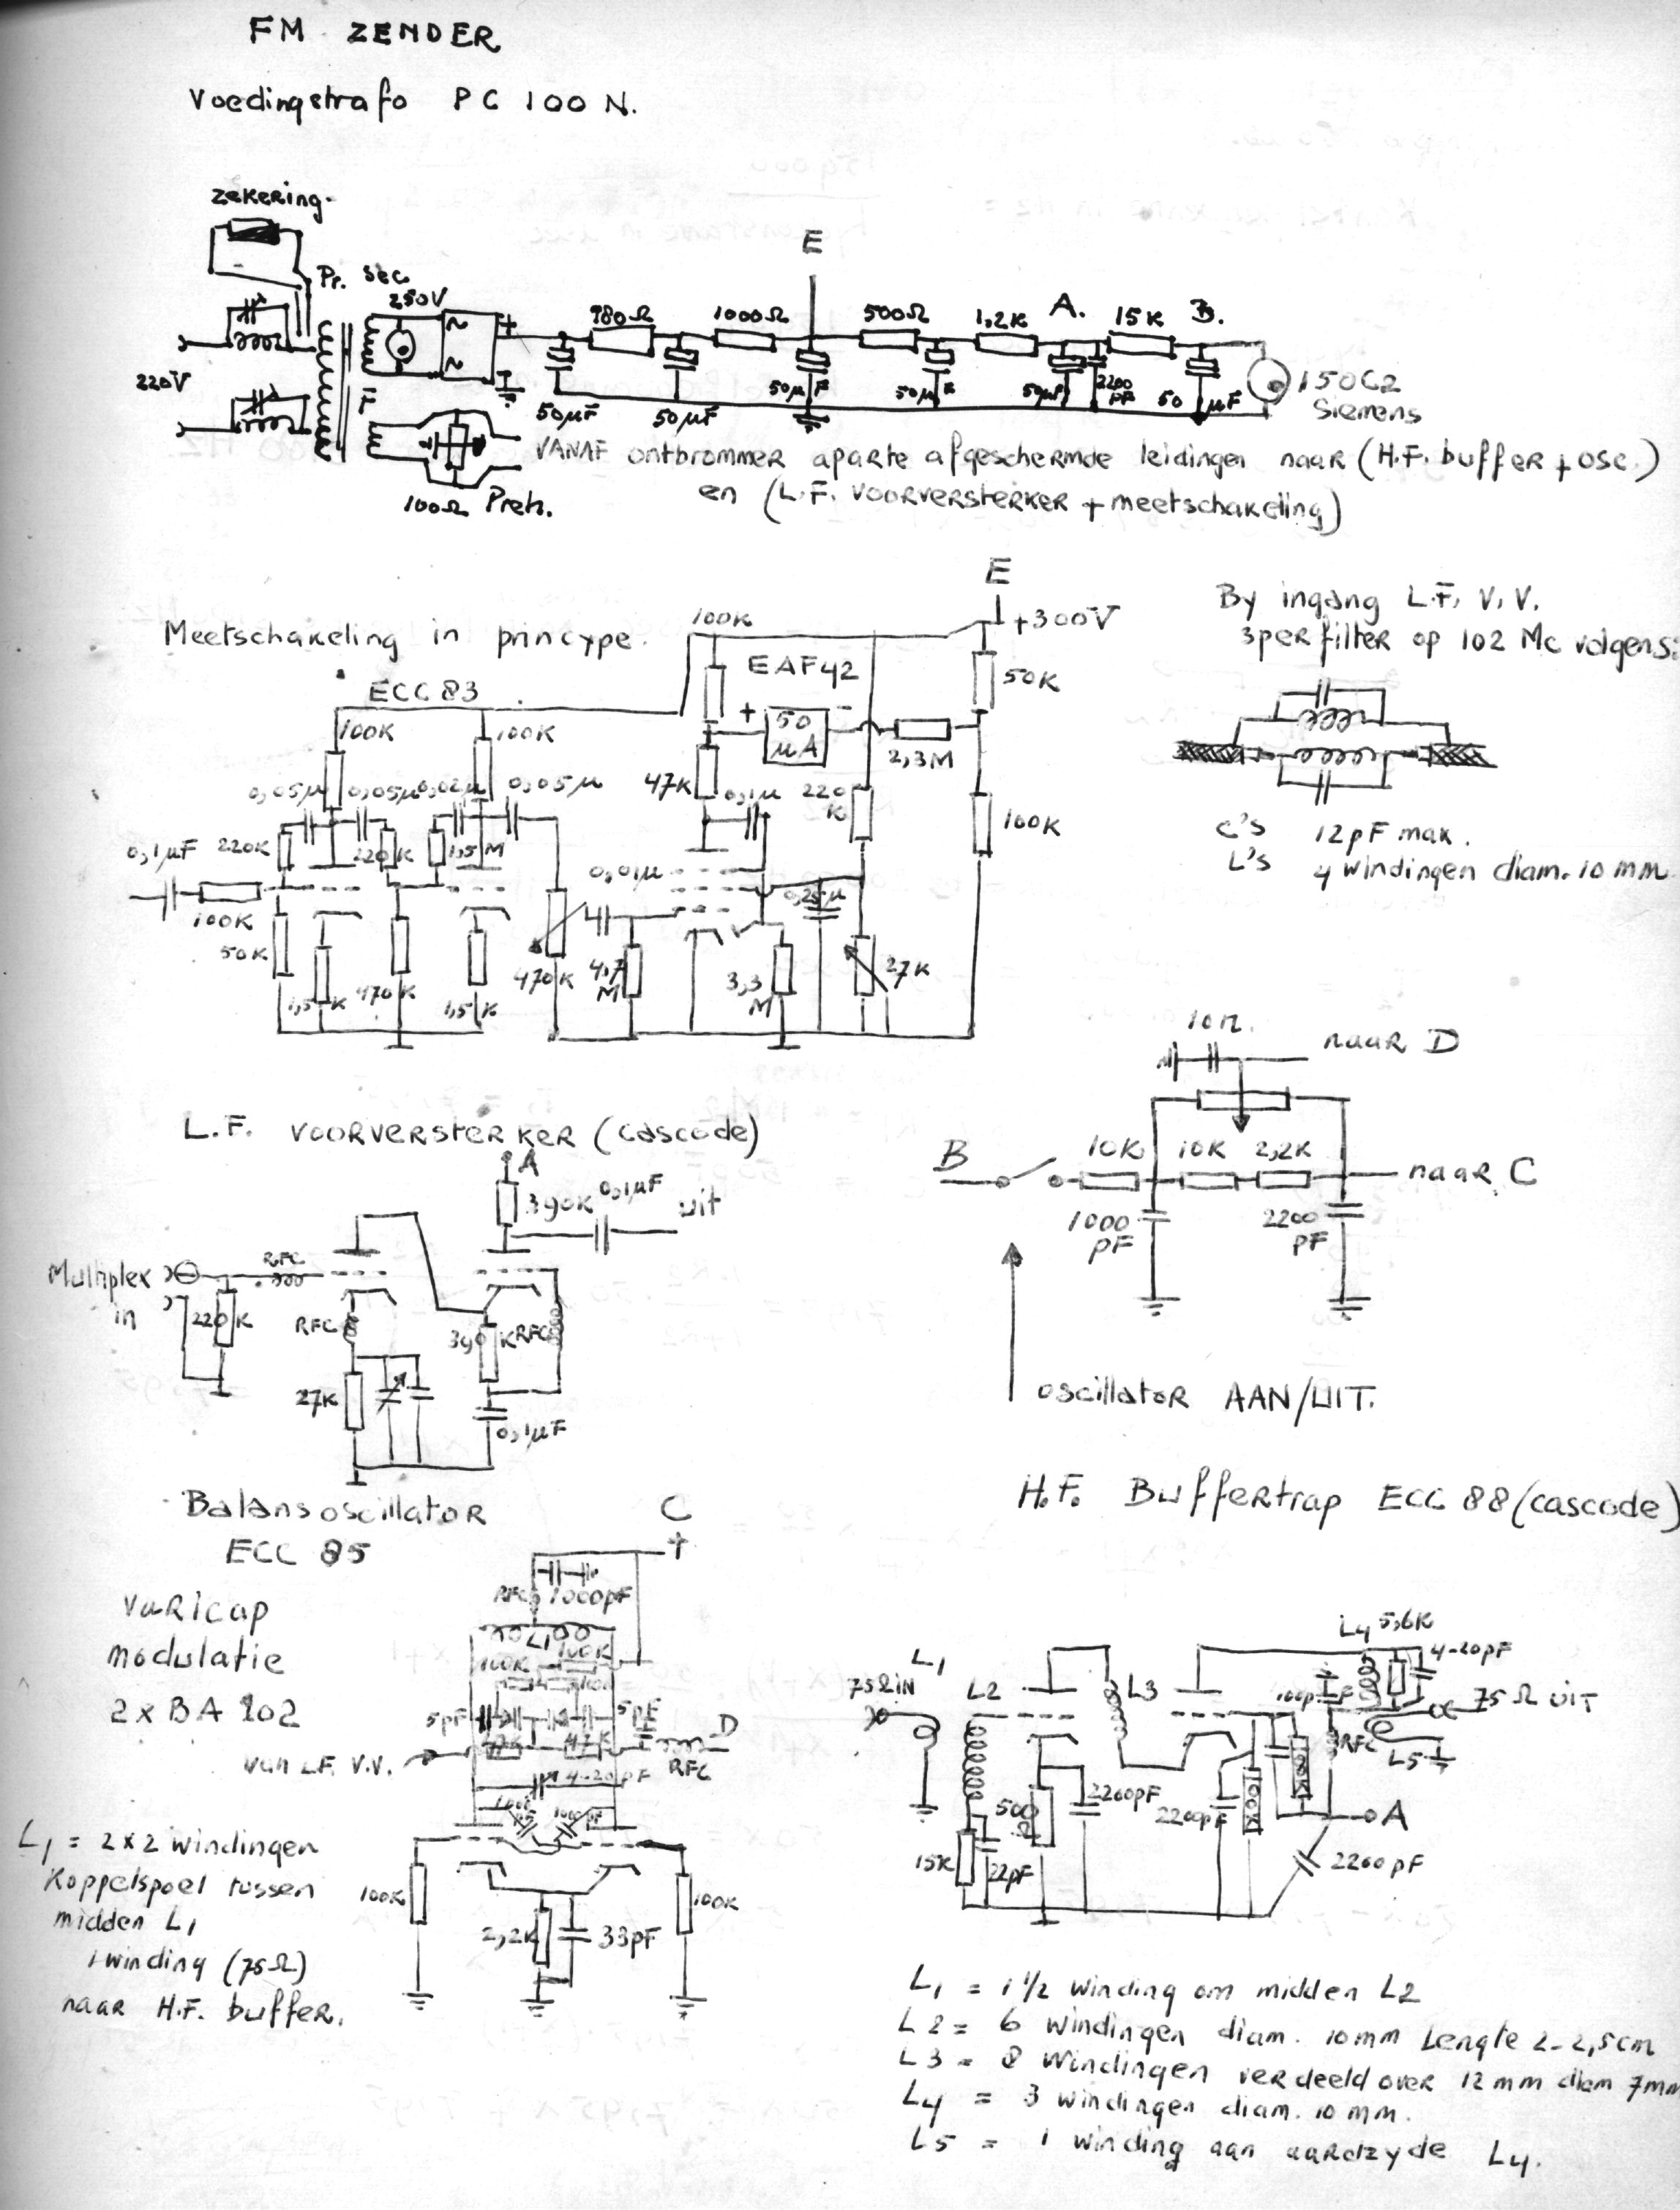 FM ZENDER
Voedingstrafo PC 100 N.
zekering
Pr. sec
250V
220V
~
~
+
980Ω
1000Ω
E
500Ω
1,2K
A.
15K
B.
50µF
50µF
50µF
50µF
50µF
2200 PF
50 µF
150C2
Siemens
100Ω Preh.
VANAF ontbrommer aparte afgeschermde leidingen naar (H.F. buffer + osc.)
en (L.F. voorversterker + meetschakeling)
Meetschakeling in princype.
ECC 83
100K
100K
100K
EAF42
E
+300V
50K
+ 50 µA -
2,3M
100K
47K
0,1µ
220 K
0,05µ
0,05µ
0,02µ
0,05µ
0,1µF
220K
220K
1,5M
100K
50K
1,5K
470K
1,5K
470K
0,01µ
4,7 M
3,3 M
0,25µ
27K
By ingang L.F. V.V.
3per filter op 102 Mc volgens:
C's 12pF max.
L's 4 windingen diam. 10 mm
L.F. voorversterker (cascode)
A
390K
0,1µF
uit
Multiplex in
RFC
220K
RFC
27K
390K
RFC
0,1µF
10n.
naar D
B
10K
10K
2,2K
naar C
1000 PF
2200 PF
oscillator AAN/UIT.
Balansoscillator
ECC 85
C
+
varicap
modulatie
2 x BA 102
RFC
1000pF
L1
100K
100K
5pF
5pF
47K
D
RFC
van L.F. V.V.
4-20pF
100K
100K
2,2K
33pF
L1 = 2x2 windingen
Koppelspoel tussen
midden L1
1 winding (75Ω)
naar H.F. buffer.
H.F. Buffertrap ECC 88 (cascode)
75Ω IN
L1
L2
L3
L4
5,6K
4-20pF
100pF
75Ω UIT
RFC
L5
500 Ω
2200pF
2200pF
100K
100K
A
15K
22pF
2200pF
L1 = 1 1/2 winding om midden L2
L2 = 6 windingen diam. 10mm Lengte 2-2,5cm
L3 = 8 windingen verdeeld over 12mm diam 7mm
L4 = 3 windingen diam. 10 mm.
L5 = 1 winding aan aardzyde L4.